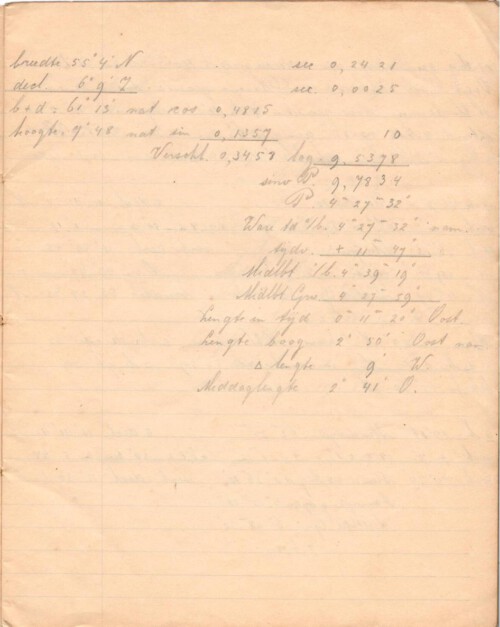 breedte 55° 4' N sec 0,2421
decl. 6° 9' Z sec. 0,0025
b+d = 61° 13' nat cos 0,4815
hoogte 7° 48 nat sin 0,1357 10
Verschl. 0,3458 log. 9,5378
sinv P. 9,7834
P. 4 27 32
Ware td a/b. 4 27 32 nam.
tydv. + 11 47
Midlbt a/b. 4 39 19
Midlbt Grw. 4 27 59
Lengte in tyd 0 11 20 Oost
Lengte boog 2° 50' Oost
Δ lengte 9' W.
Middaglengte 2° 41' O.